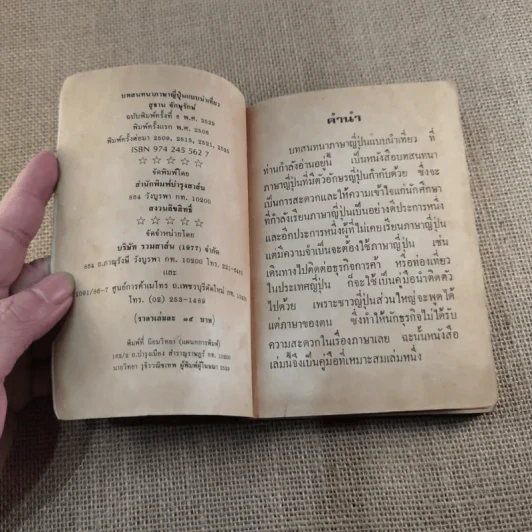 บทสนทนาภาษาญี่ปุ่นแบบนำเที่ยว
สุชาน ชักษุรักษ์
ฉบับพิมพ์ครั้งที่ 6 พ.ศ. 2528
พิมพ์ครั้งแรก พ.ศ. 2506
พิมพ์ครั้งต่อมา 2509, 2515, 2521, 2525
ISBN 974 245 562 7
☆ ☆ ☆ ☆ ☆
จัดพิมพ์โดย
สำนักพิมพ์บำรุงสาส์น
864 วังบูรพา กท. 10200
สงวนลิขสิทธิ์
☆ ☆ ☆ ☆ ☆
จัดจำหน่ายโดย
บริษัท รวมสาส์น (1977) จำกัด
864 ถ.ภาณุรังษี วังบูรพา กท. 10200 โทร. 221-6483
และ
2081/86-7 ศูนย์การค้าเมโทร ถ.เพชรบุรีตัดใหม่ กท. 10400
โทร. (02) 253-1489
(ราคาเล่มละ ๑๕ บาท)
พิมพ์ที่ นิยมวิทยา (แผนกการพิมพ์)
162/2 ถ.บำรุงเมือง สำราญราษฎร์ กท. 10200
นายวิทยา ผู้พิมพ์ผู้โฆษณา 2528
คำนำ
บทสนทนาภาษาญี่ปุ่นแบบนำเที่ยว ที่
ท่านกำลังอ่านอยู่นี้ เป็นหนังสือบทสนทนา
ภาษาญี่ปุ่นที่มีตัวอักษรญี่ปุ่นกำกับด้วย ซึ่งจะ
เป็นการสะดวกและให้ความเข้าใจแก่นักศึกษา
ที่กำลังเรียนภาษาญี่ปุ่นเป็นอย่างดีประการหนึ่ง
และอีกประการหนึ่งผู้ที่ไม่เคยเรียนภาษาญี่ปุ่น
แต่มีความจำเป็นจะต้องใช้ภาษาญี่ปุ่น เช่น
เดินทางไปติดต่อธุรกิจการค้า หรือท่องเที่ยว
ในประเทศญี่ปุ่น ก็จะใช้เป็นคู่มือนำติดตัว
ไปด้วย เพราะชาวญี่ปุ่นส่วนใหญ่จะพูดได้
แต่ภาษาของตน ซึ่งทำให้นักธุรกิจไม่ได้รับ
ความสะดวกในเรื่องภาษาเลย ฉะนั้นหนังสือ
เล่มนี้จึงเป็นคู่มือที่เหมาะสมเล่มหนึ่ง